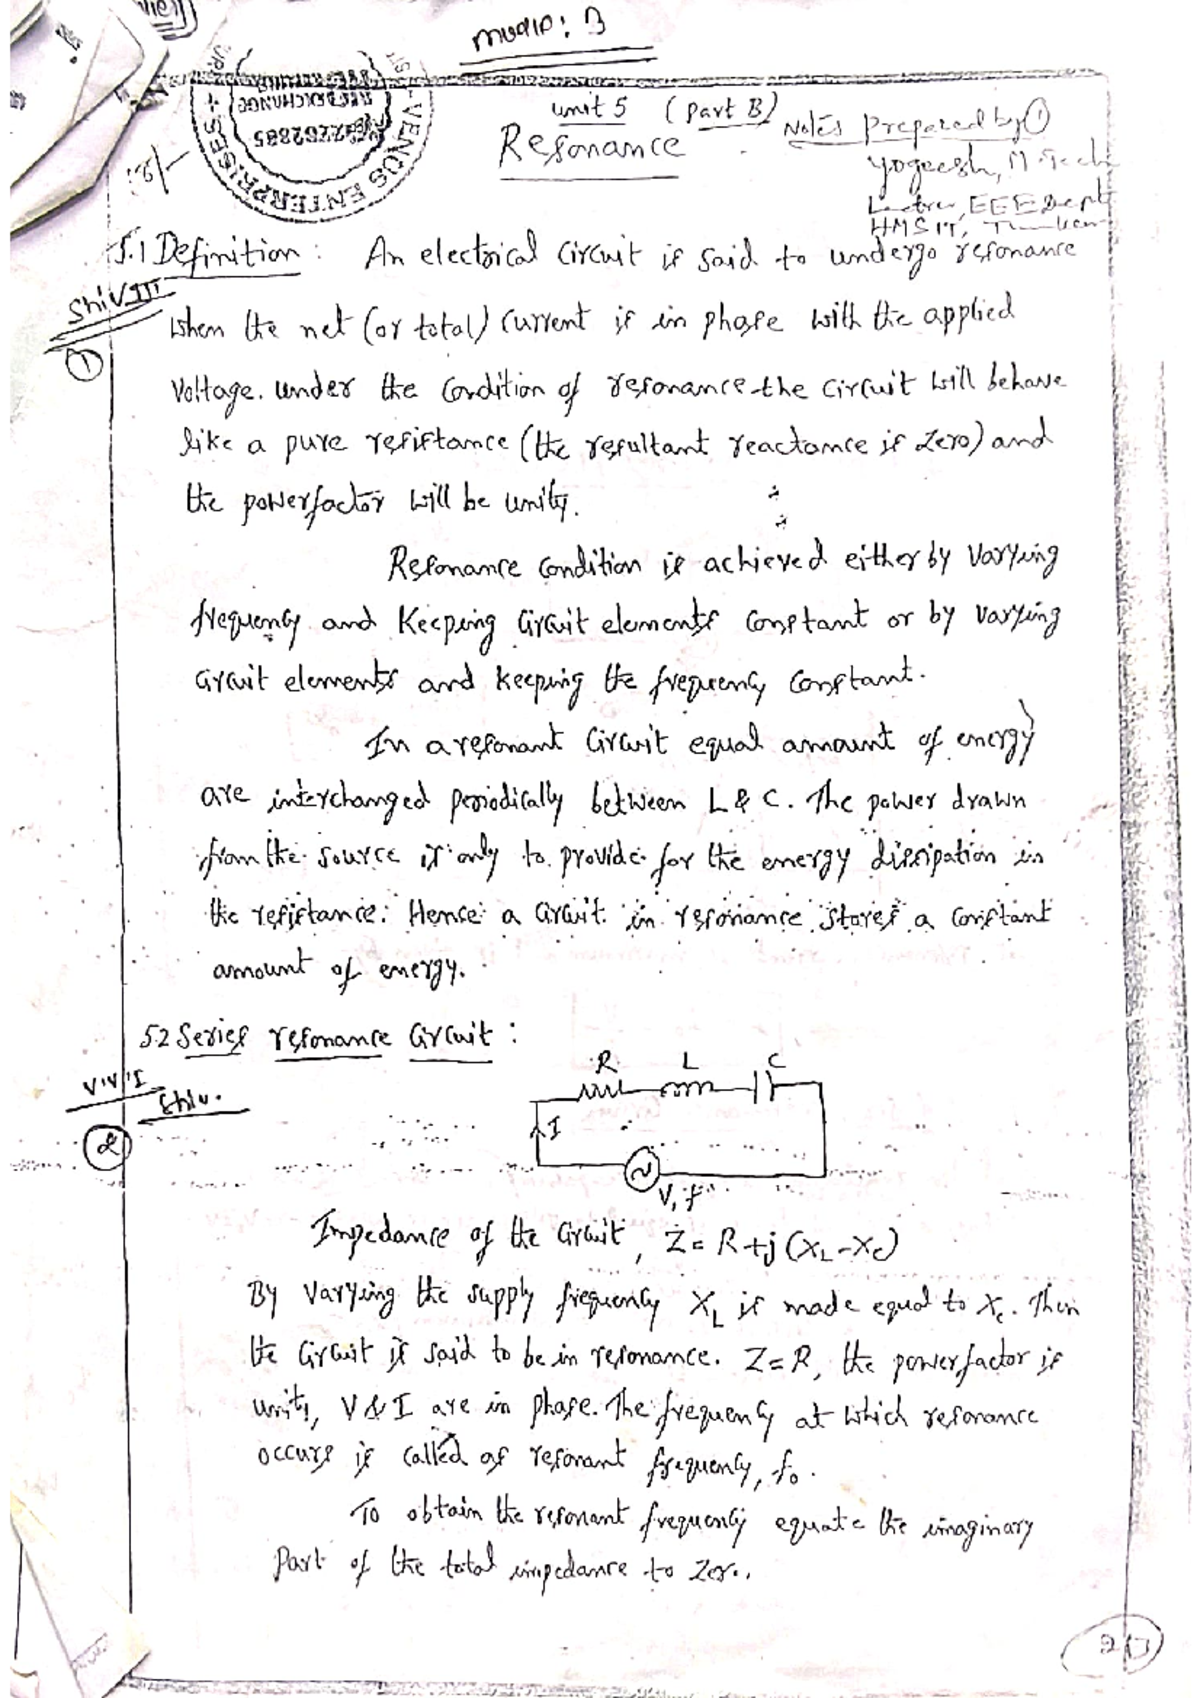 unit 5 (Part B)
Resonance
Notes prepared by ①
Yogeesh, M.Tech
EEE Dept
HMSIT,
VENUS ENTERPRISES
5.1 Definition : An electrical circuit is said to undergo resonance
when the net (or total) current is in phase with the applied
voltage. under the condition of resonance the circuit will behave
like a pure resistance (the resultant reactance is zero) and
the powerfactor will be unity.
Resonance condition is achieved either by varying
frequency and keeping circuit elements constant or by varying
circuit elements and keeping the frequency constant.
In a resonant circuit equal amount of energy
are interchanged periodically between L & C. The power drawn
from the source is only to provide for the energy dissipation in
the resistance. Hence a circuit in resonance stores a constant
amount of energy.
①
5.2 Series resonance circuit :
②
R L C
I
V, f
Impedance of the circuit, Z = R+j(XL-Xc)
By varying the supply frequency XL is made equal to Xc. Then
the circuit is said to be in resonance. Z=R, the powerfactor is
unity, V & I are in phase. The frequency at which resonance
occurs is called as resonant frequency, fo.
To obtain the resonant frequency equate the imaginary
Part of the total impedance to zero.